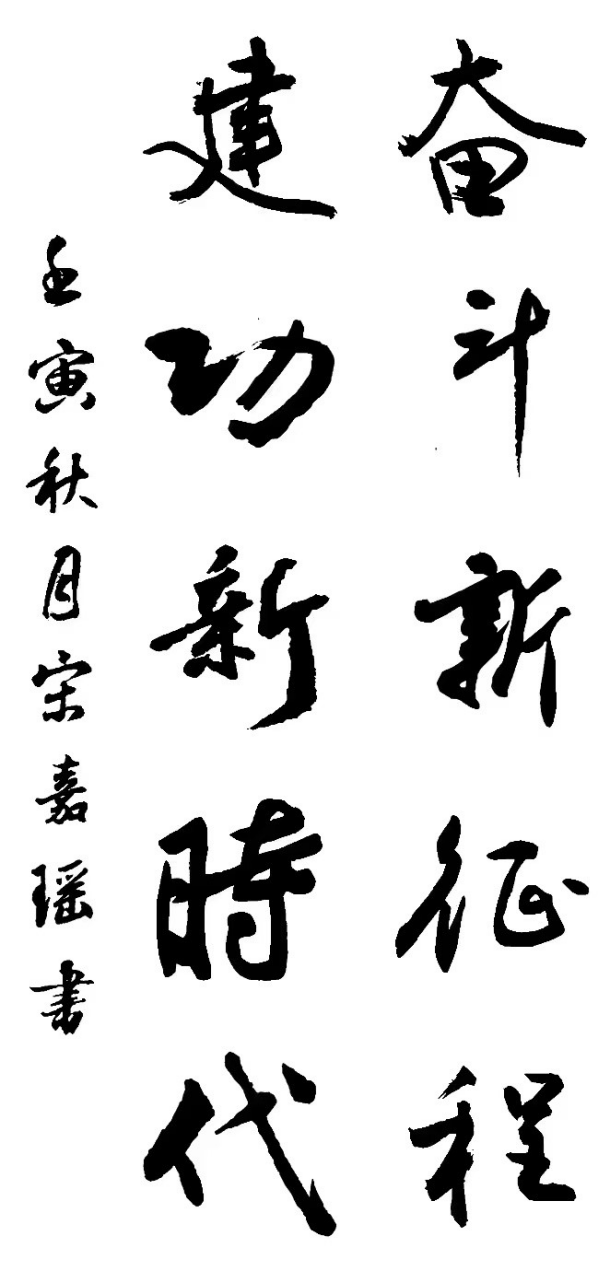 奋斗新征程
建功新時代
壬寅秋月宋嘉瑶書